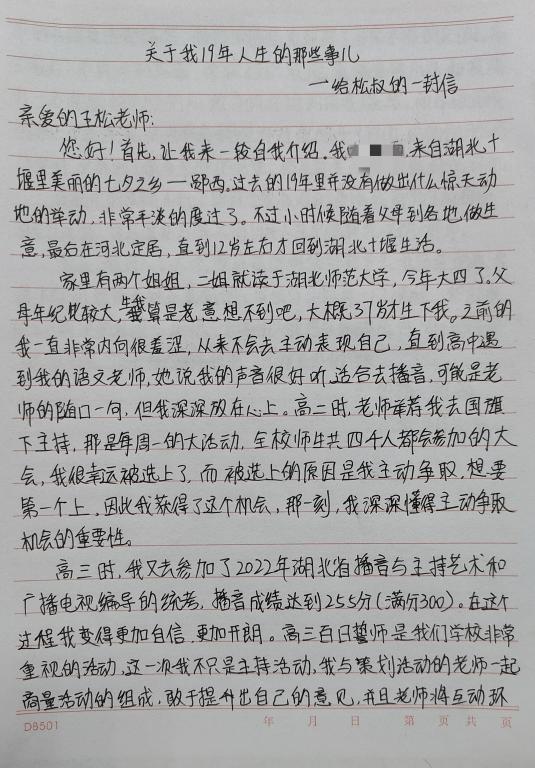 关于我19年人生的那些事儿
一给松叔的一封信
亲爱的王松老师:
您好!首先,让我来一段自我介绍。我 ,来自湖北十
堰里美丽的七夕之乡一郧西。过去的19年里并没有做出什么惊天动
地的举动,非常平淡的度过了。不过小时候随着父母到各地做生
意,最后在河北定居,直到12岁左右才回到湖北十堰生活。
家里有两个姐姐,二姐就读于湖北师范大学,今年大四了。父
母年纪比较大,生我算是老意想不到吧,大概37岁才生下我。之前的
我一直非常内向很羞涩,从来不会去主动表现自己,直到高中遇
到我的语文老师,她说我的声音很好听,适合去播音,可能是老
师的随口一句,但我深深放在心上。高二时,老师举荐我去国旗
下主持,那是每周一的大活动,全校师生共四千人都会参加的大
会,我很幸运被选上了,而被选上的原因是我主动争取,想要
第一个上。因此我获得了这个机会,那一刻,我深深懂得主动争取
机会的重要性。
高三时,我又去参加了2022年湖北省播音与主持艺术和
广播电视编导的统考,播音成绩达到255分(满分300)。在这个
过程我变得更加自信,更加开朗。高三百日誓师是我们学校非常
重视的活动,这一次我不只是主持活动,我与策划活动的老师一起
商量活动的组成,敢于提升出自己的意见,并且老师将互动环
D8501 年 月 日 第 页 共 页